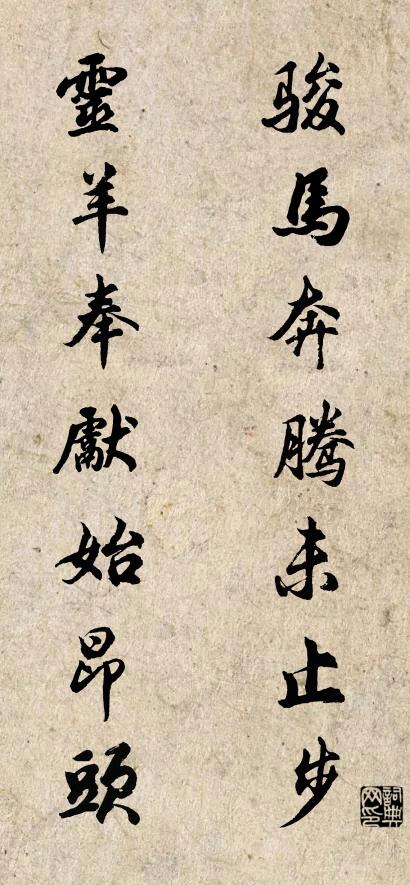 骏馬奔腾未止步
靈羊奉獻始昂頭
詞典网印